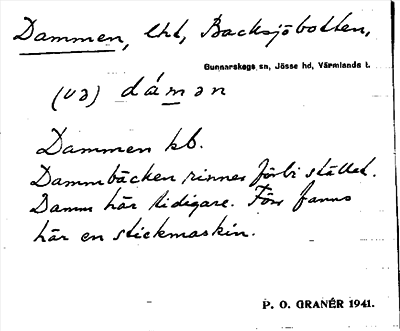 Dammen, lht, Backsjöbotten,
Gunnarskogs sn, Jösse hd, Värmlands l.
(ua) dámən
Dammen kb.
Dammbäcken rinner förbi stället.
Damm här tidigare. Förr fanns
här en stickmaskin.
P. O. GRANÉR 1941.